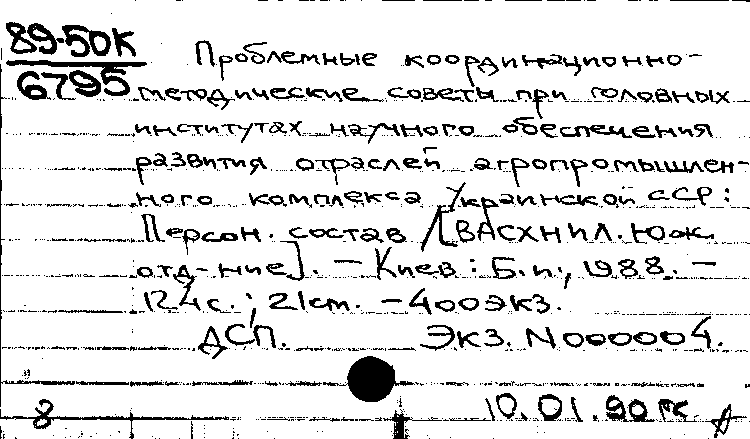 89-50К
6795
Проблемные координационно-
методические советы при головных
институтах научного обеспечения
развития отраслей агропромышлен-
ного комплекса Украинской ССР:
Персон. состав /[ВАСХНИЛ. Юж.
отд-ние]. – Киев: Б.и., 1988. –
124с.; 21cm. – 400экз.
ДСП. Экз. N000004.
8 10.01.90